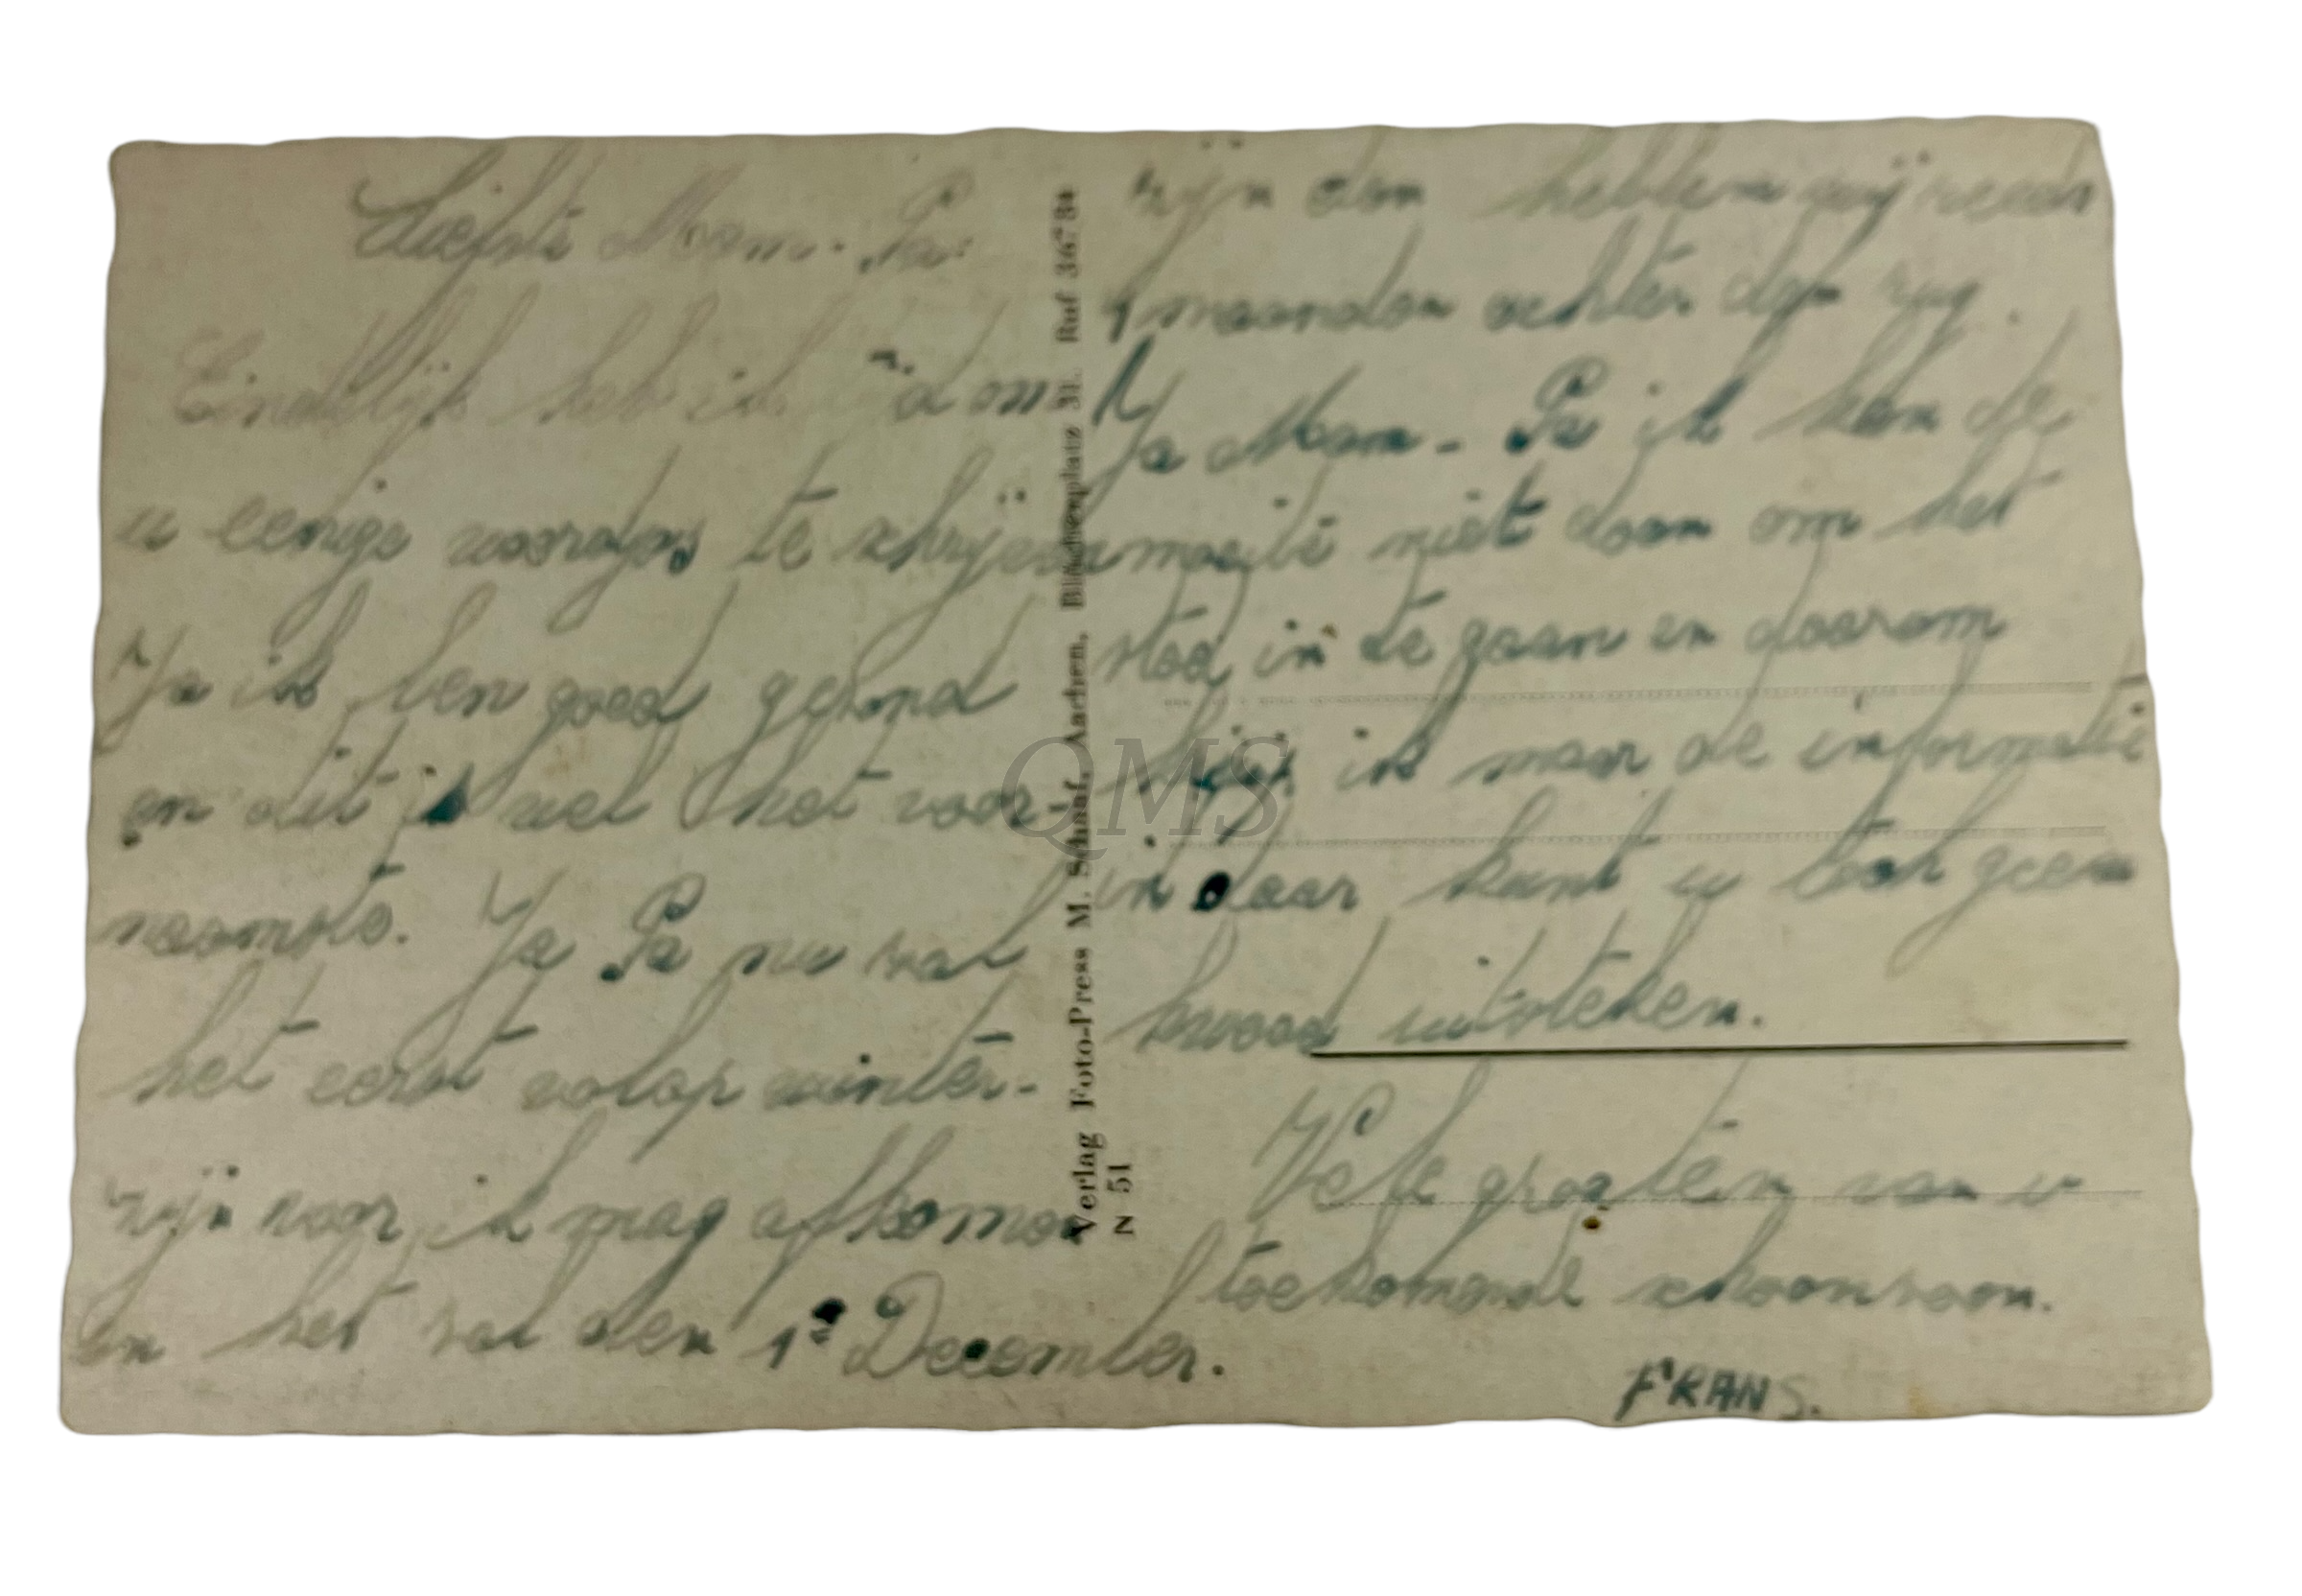 Liefste Mam. Pa.
Eindelijk heb ik om
u eenige woordjes te schrijven
Ja ik ben goed gezond
en dit is wel het voor-
naamste. Ja Pa nu zal
het eerst volop winter-
zijn voor ik mag afkomen
en het zal den 1e December.
zijn dan hebben wij reeds
maanden achter den rug.
Ja Mam - Pa ik kan de
moeite niet doen om het
stad in te gaan en daarom
ik maar de informatie
in daar kunt u toch geen
kwaad uitsteken.
Vele groeten van u
toekomende schoonzoon.
FRANS.
Verlag Foto-Press M. Schaaf, Aachen, Blücherplatz 31. Ruf 36784
N 51
QMS